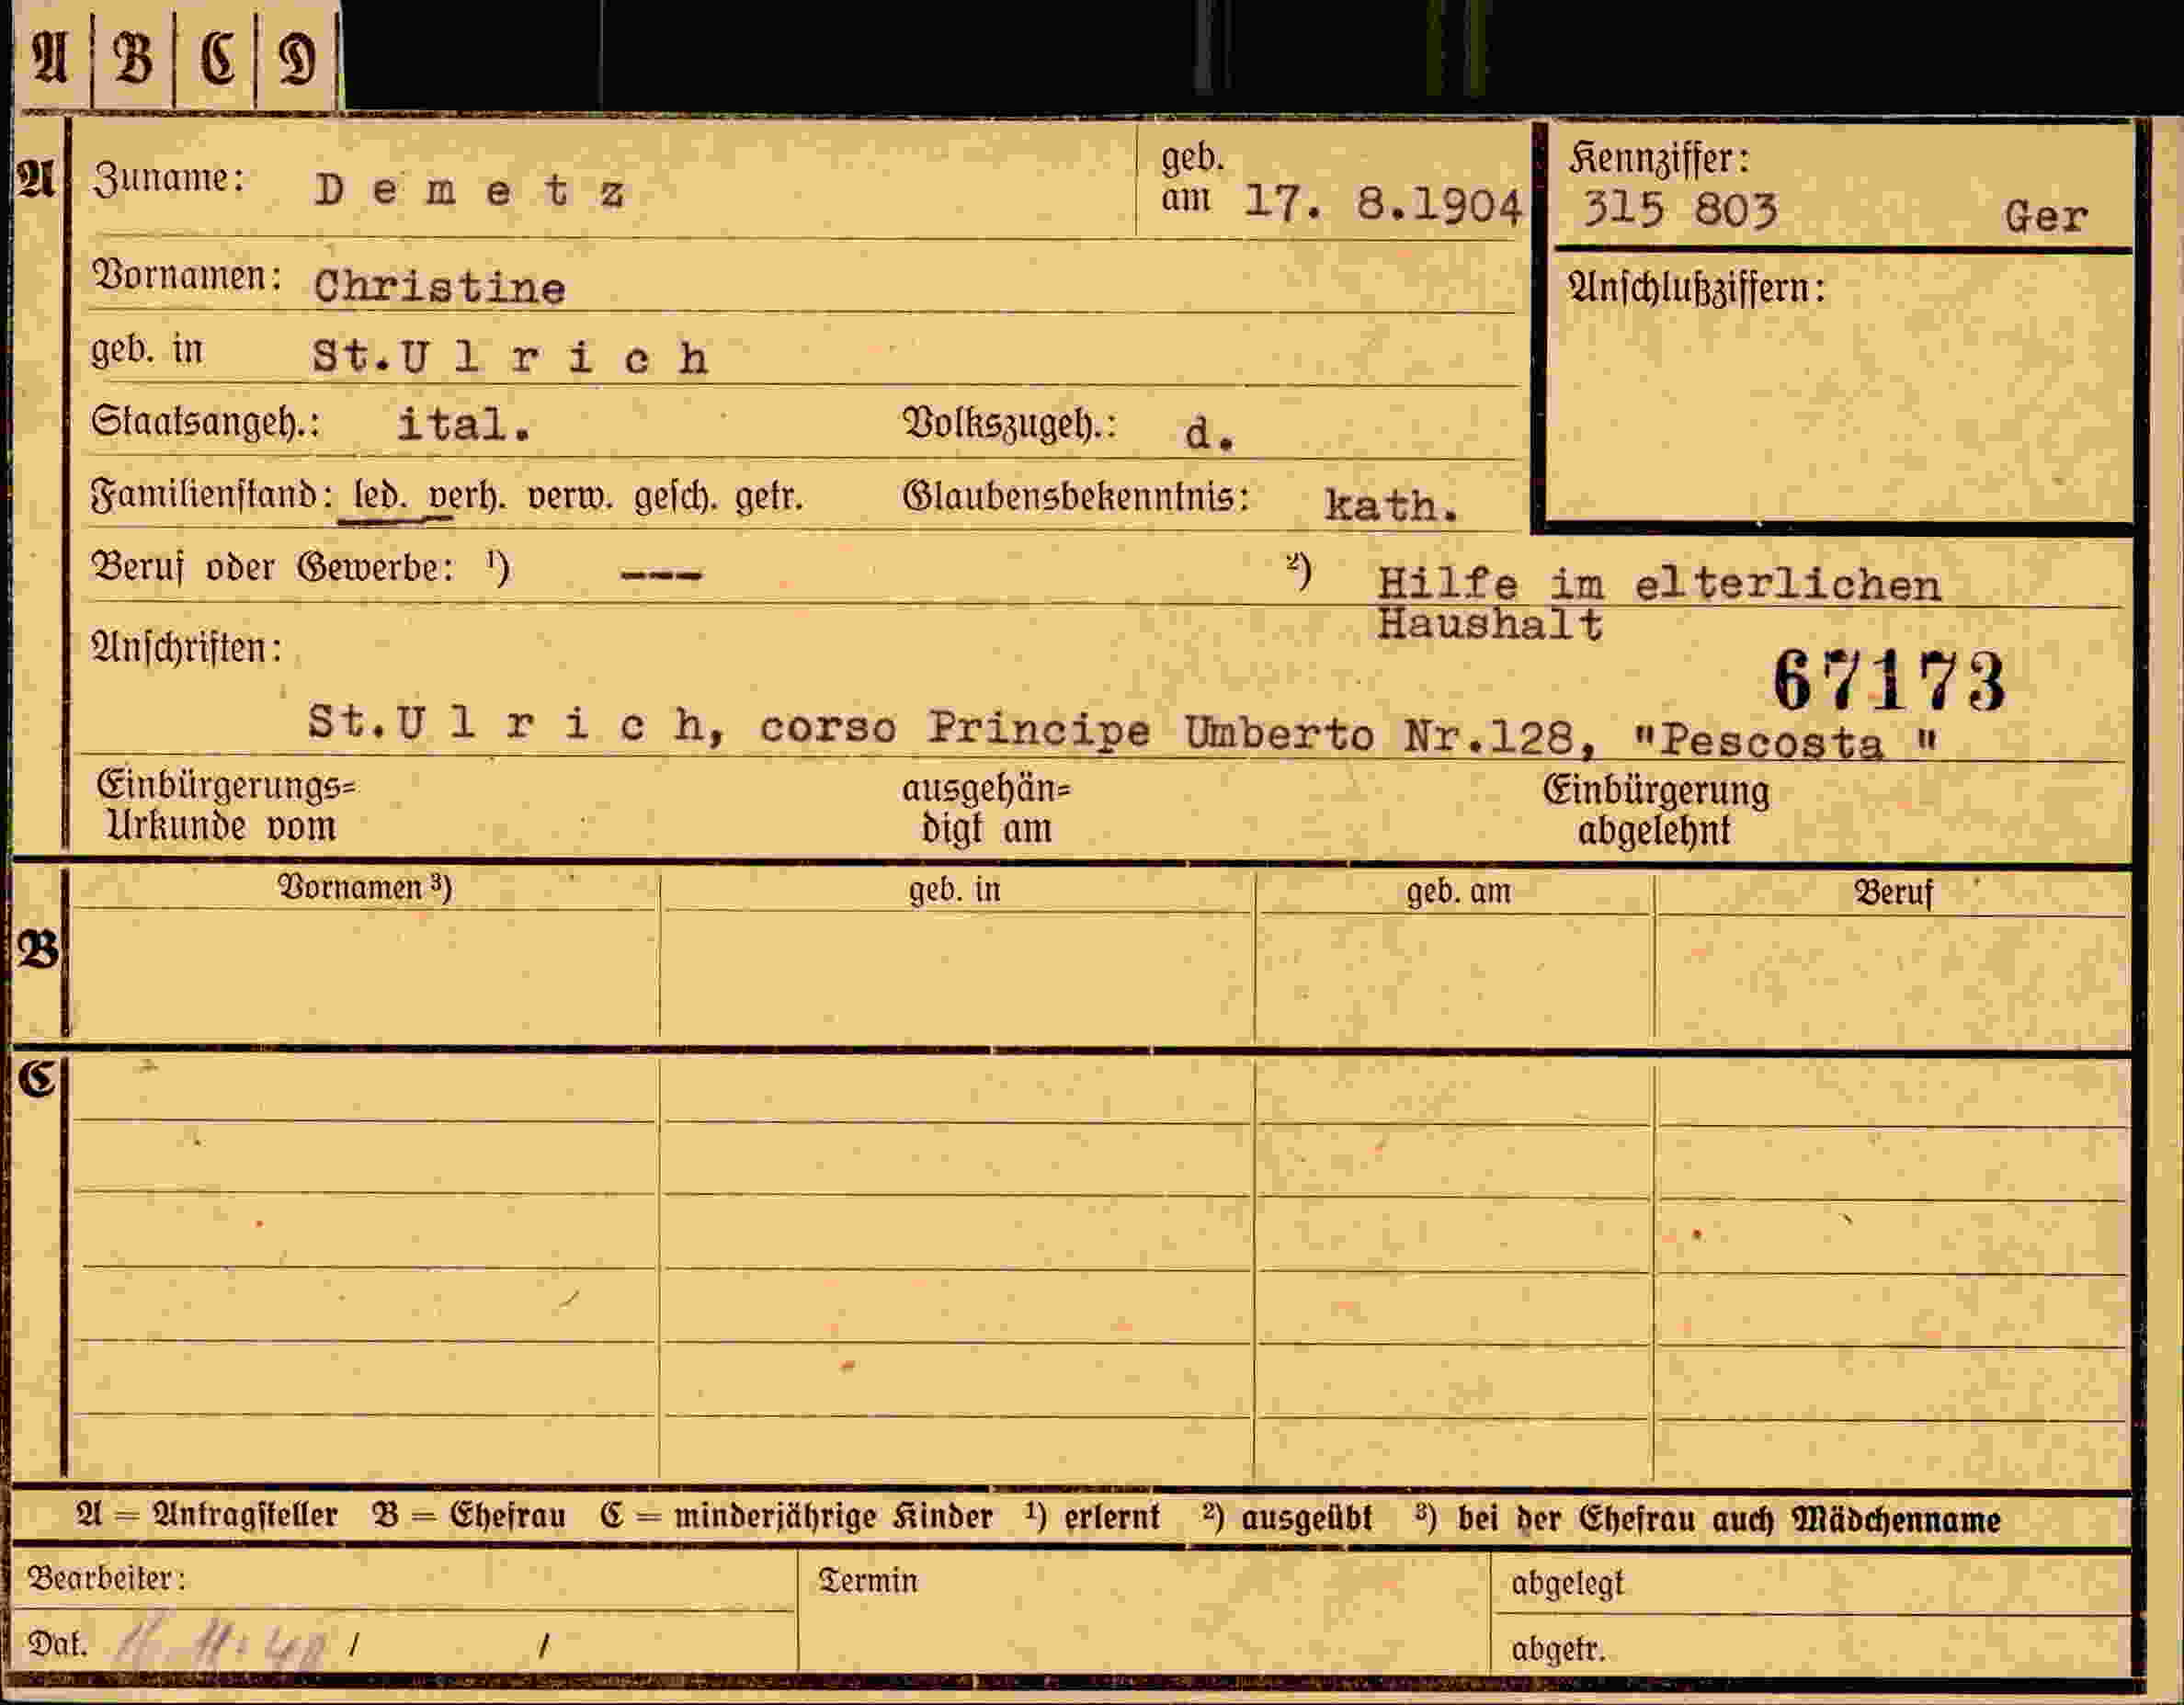 A B C D
A Zuname: D e m e t z geb. am 17. 8.1904
Kennziffer:
315 803 Ger
Vornamen: Christine
Anschlußziffern:
geb. in St.U l r i c h
Staatsangeh.: ital. Volkszugeh.: d.
Familienstand: led. verh. verw. gesch. getr. Glaubensbekenntnis: kath.
Beruf oder Gewerbe: ¹) --- ²) Hilfe im elterlichen
Haushalt
Anschriften:
67173
St.U l r i c h, corso Principe Umberto Nr.128, "Pescosta "
Einbürgerungs= ausgehän= Einbürgerung
Urkunde vom digt am abgelehnt
Vornamen ³) geb. in geb. am Beruf
B
C
A = Antragsteller B = Ehefrau C = minderjährige Kinder ¹) erlernt ²) ausgeübt ³) bei der Ehefrau auch Mädchenname
Bearbeiter: Termin abgelegt
Dat. / / abgetr.